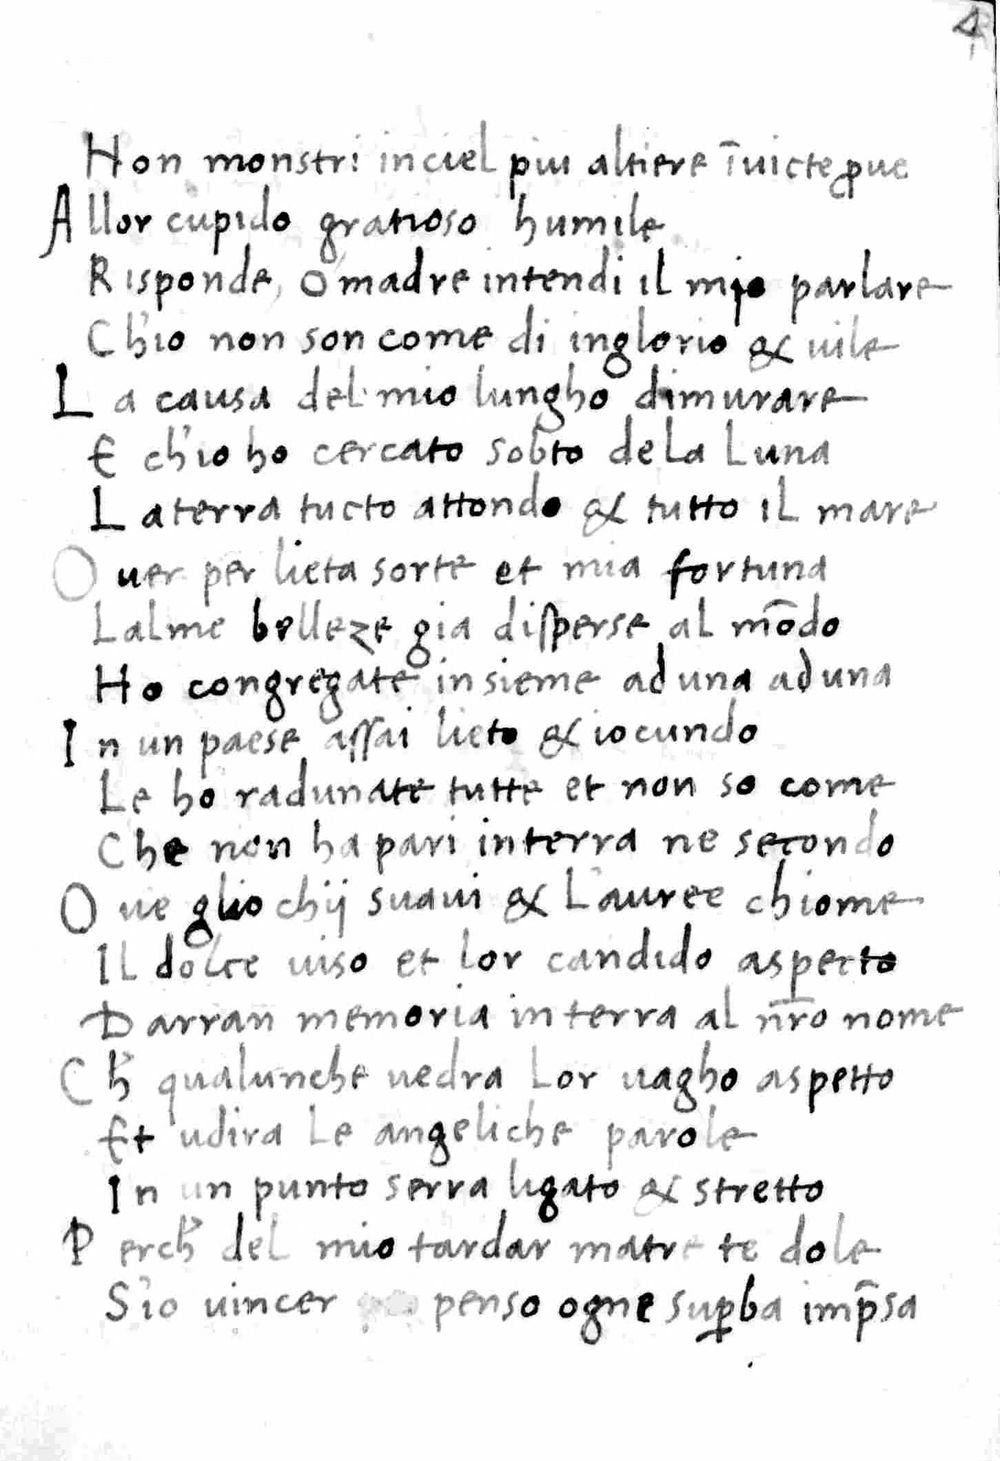 4
Hon monstri inciel piu altiere īuicte ꝓue
Allor cupido gratioso humile
Risponde, O madre intendi il mio parlare
Ch'io non son come di inglorio & uile
La causa del mio lungho dimurare
E ch'io ho cercato sobto de la Luna
La terra tucto attondo & tutto il mare
Ouer per lieta sorte et mia fortuna
Lalme belleze gia disperse al mōdo
Ho congregate insieme ad una ad una
In un paese assai lieto & iocundo
Le ho radunate tutte et non so come
Che non ha pari in terra ne secondo
Oue gliochij suaui & L'auree chiome
Il dolce uiso et lor candido aspecto
Darran memoria in terra al nr̄o nome
Ch̄ qualunche uedra Lor uagho aspetto
Et udira Le angeliche parole
In un punto serra ligato & stretto
Perch̄ del mio tardar matre te dole
S'io uincer penso ogne suꝑba imp̄sa